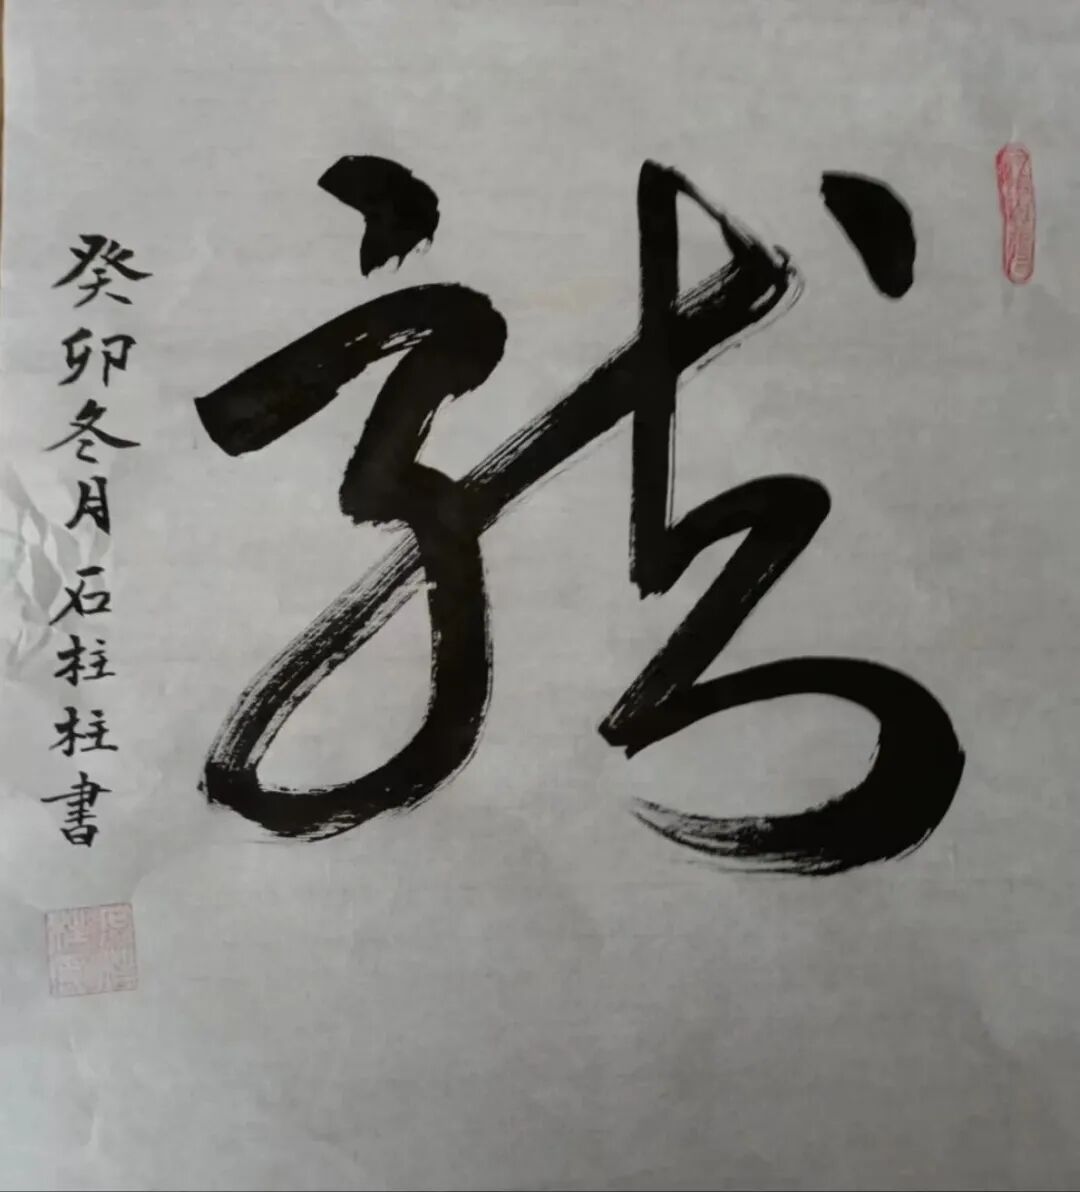 龍
癸卯冬月石柱柱書